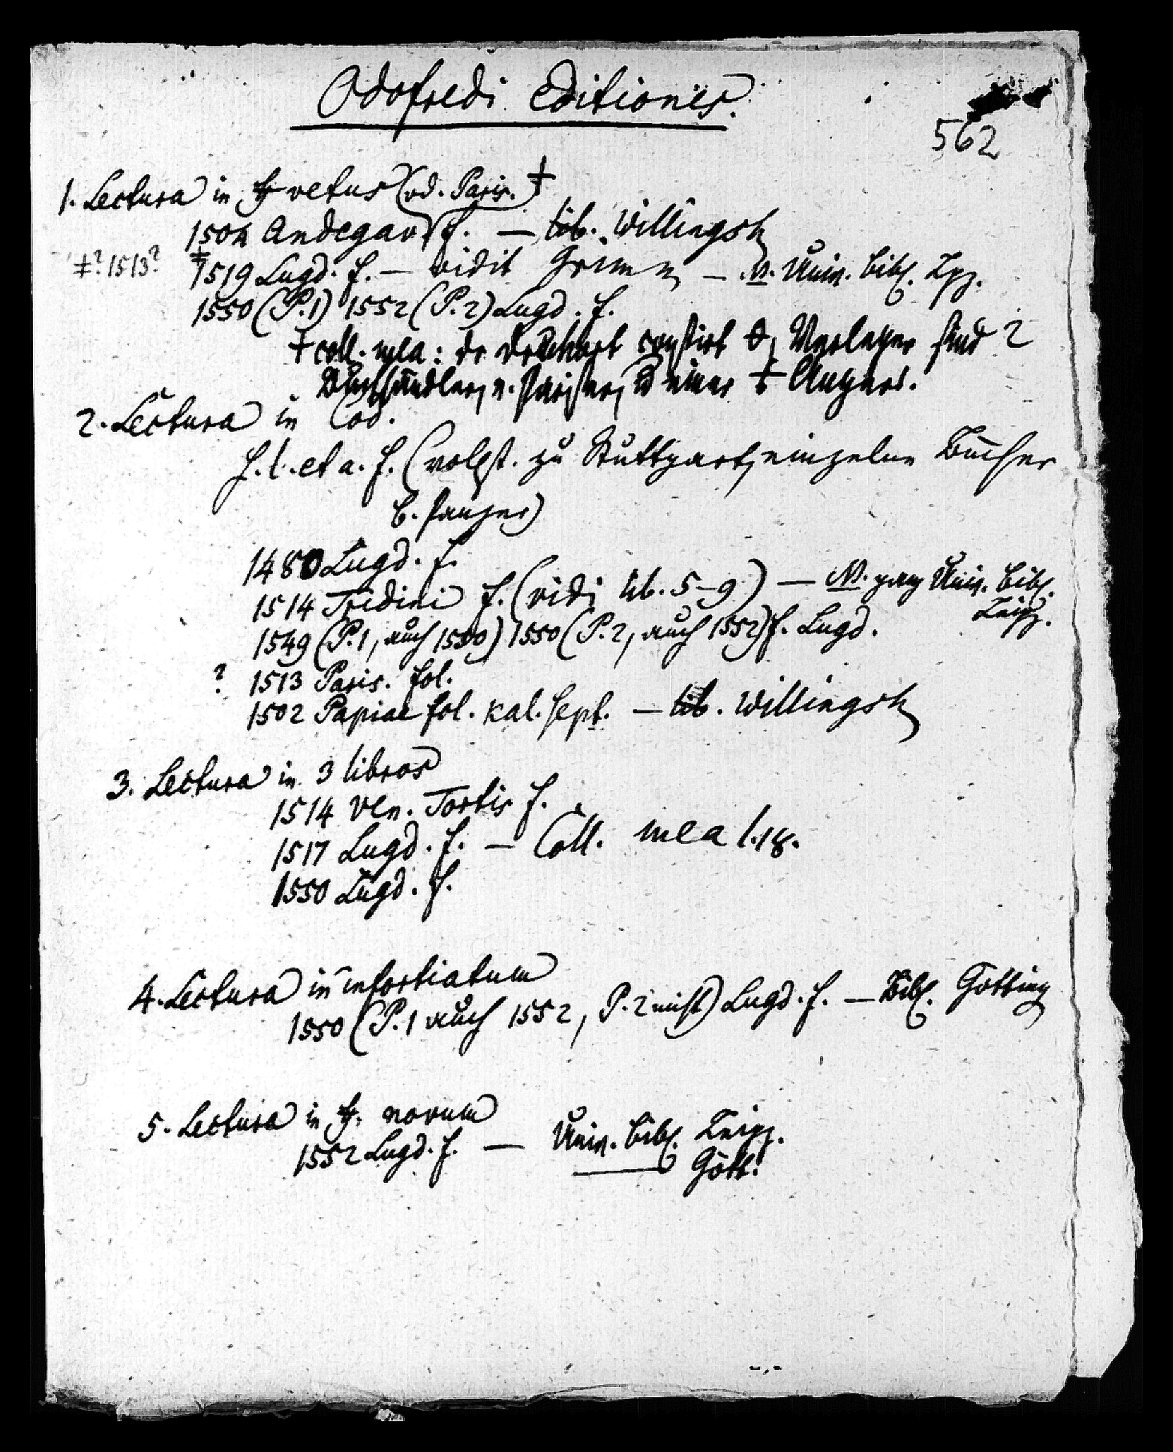 Odofredi Editiones.
562
1. Lectura in ff vetus (ed. Paris.) ‡
1504 Andegav. f. — bib. Willingsh
‡? 1513? ‡ 1519 Lugd. f. — vidit Grimm — N. Univ. bibl. Lpz.
1550 (P.1) 1552 (P.2) Lugd. f.
† coll. mea: der Druckort existirt Verleger sind 2
Buchhändler, e. Pariser, einer ‡ Angers.
2. Lectura in Cod.
s. l. et a. f. (vollst. zu Stuttgart, einzelne Bücher
b. Panzer)
1480 Lugd. f.
1514 Tridini f. (vidi lib. 5–9) — N. Univ. bibl.
Leipz.
1549 (P.1, auch 1550) 1550 (P.2, auch 1552) f. Lugd.
? 1513 Paris. fol.
1502 Papiae fol. kal. Sept. — bib. Willingsh
3. Lectura in 3 libros
1514 Ven. Tortis f.
1517 Lugd. f. — Coll. mea l. 18.
1550 Lugd. f.
4. Lectura in infortiatum
1550 (P.1 auch 1552, P.2 nicht) Lugd. f. — Bibl. Gotting
5. Lectura in ff. novum
1552 Lugd. f. — Univ. bibl. Leipz.
—— Gött.